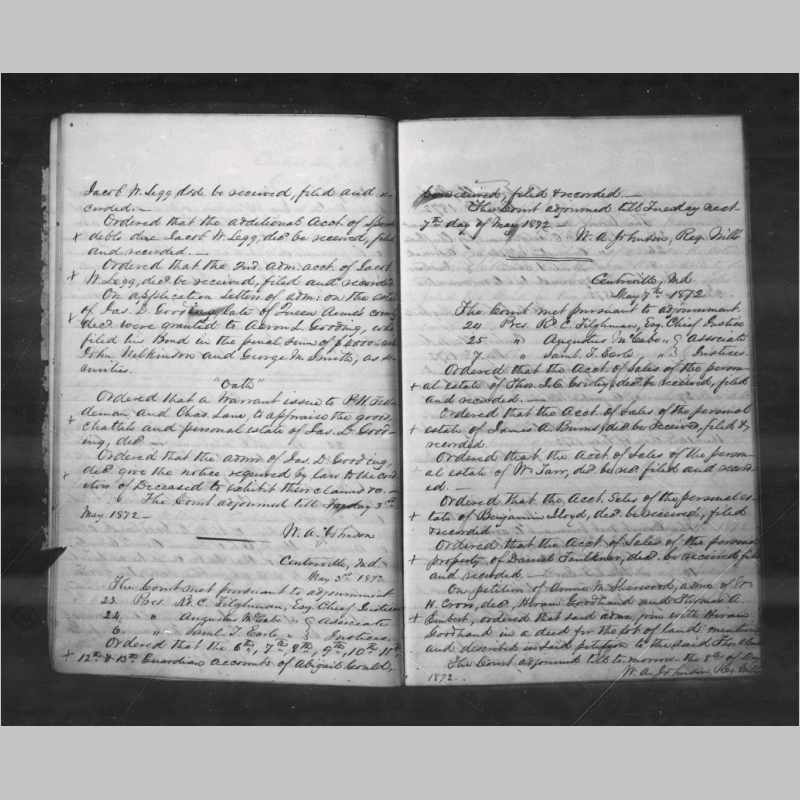 Jacob W. Legg, decd. be received, filed and re-
corded. —
Ordered that the additional Acct. of
debts due Jacob W. Legg, decd. be received, filed
and recorded. —
Ordered that the 2nd Adm. acct. of Jacob
W. Legg, decd. be received, filed and recorded
On application Letters of adm. on the estate
of Jas. D. Gooding late of Queen Annes county
decd. were granted to Aaron L. Gooding, who
filed his Bond in the penal sum of and
John Wilkinson and George M. Smith, as se-
curities.
"Oath"
Ordered that a Warrant issue to
deman and Chas. Lane, to appraise the goods,
chattels and personal estate of Jas. D. Good-
ing, decd. —
Ordered that the admr. of Jas. D. Gooding,
decd. give the notice required by law to the cred-
itors of Deceased to exhibit their claims &c. —
The Court adjourned till 3rd
May 1872 —
W. A. Johnson
Centreville, Md.
May 3rd 1872
The Court met pursuant to adjournment
23. Pres. R. C. Tilghman, Esq. Chief Justice
24. " Augustus McCabe " } Associate
6. " Saml. T. Earle " } Justices.
Ordered that the 6th, 7th, 8th, 9th, 10th 11th
12th & 13th Guardian accounts of Abigail
be received, filed & recorded. —
The Court adjourned till Tuesday next
7th day of May 1872 —
W. A. Johnson, Reg. Wills
Centreville, Md
May 7th 1872
The Court met pursuant to adjournment.
24 Pres. R. C. Tilghman, Esq. Chief Justice
25 " Augustus McCabe " } Associate
7. " Saml. T. Earle " } Justices.
Ordered that the Acct. of Sales of the person-
al estate of Thos. decd. be received, filed
and recorded. —
Ordered that the Acct. of Sales of the personal
estate of James A. Burns, decd. be received, filed &
recorded.
Ordered that the Acct. of Sales of the person-
al estate of Wm. Tarr, decd. be rec. filed and record-
ed. —
Ordered that the Acct. Sales of the personal es-
tate of Benjamin Lloyd, decd. be received, filed
& recorded
Ordered that the Acct. of Sales of the personal
property of Daniel Faulkner, decd. be received, filed
and recorded —
On petition of Annie M. Sherwood, admx. of
H. Cross, decd., Hiram Goodhand and Thomas A.
Embert, ordered that said admx. join with Hiram
Goodhand in a deed for the lot of land mentioned
and described in said petition to the said
The Court adjourned till to-morrow the 8th of
1872. W. A. Johnson Reg. Wills